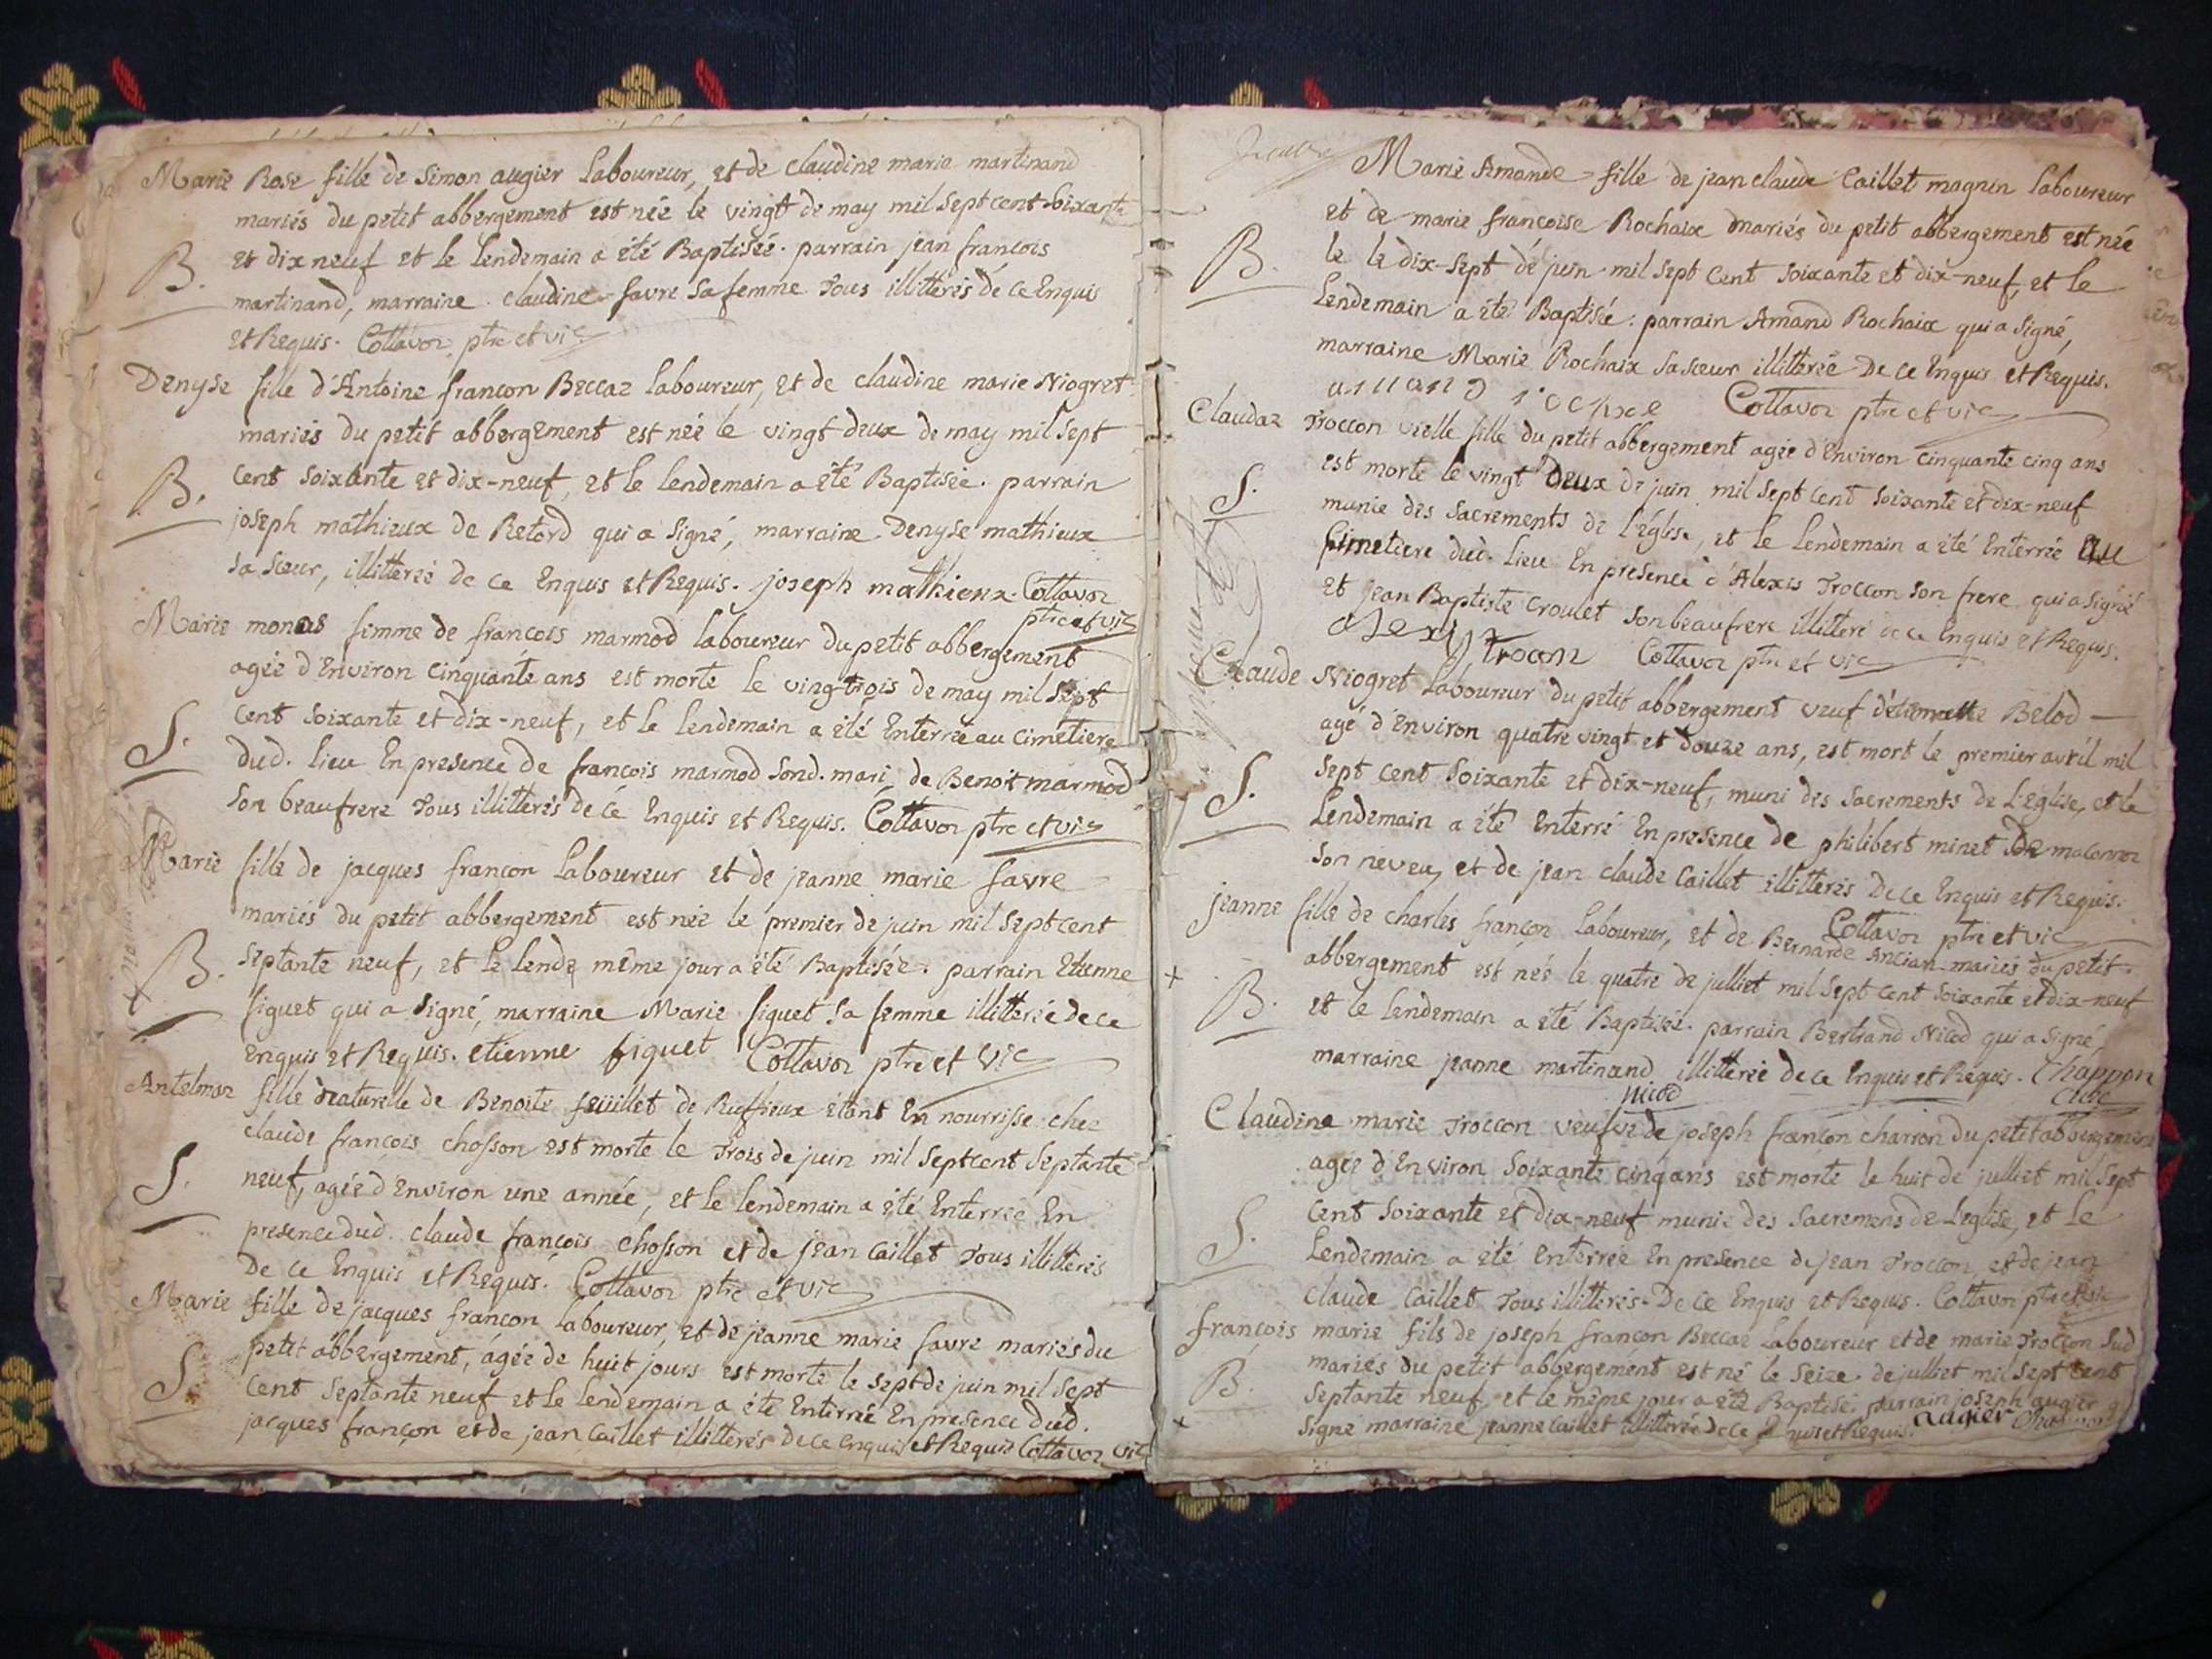 Marie Rose fille de Simon augier Laboureur, et de claudine maria martinand
mariés du petit abbergement est née le vingt de may mil sept cent soixante
B. et dix neuf et le lendemain a été Baptisée. parrain jean francois
martinand, marraine claudine favre sa femme Tous illitterés de ce Enquis
et Requis. Cottavoz ptre et vic
Denyse fille d'Antoine francon Beccaz laboureur, et de claudine marie Niogret
mariés du petit abbergement est née le vingt deux de may mil sept
B. cent soixante et dix-neuf, et le lendemain a été Baptisée. parrain
joseph mathieux de Retord qui a signé, marraine Denyse mathieux
sa sœur, illitterée de ce Enquis et Requis. joseph mathieux Cottavoz
ptre et vic
Marie monas femme de francois marmod laboureur du petit abbergement
agée d'Environ cinquante ans est morte le vingt-trois de may mil sept
S. cent soixante et dix-neuf, et le lendemain a été Enterrée au cimetiere
dud. lieu En presence de francois marmod sond. mari, de Benoit marmod
son beaufrere Tous illitterés de ce Enquis et Requis. Cottavoz ptre et vic
Marie fille de jacques francon Laboureur et de jeanne marie favre
mariés du petit abbergement est née le premier de juin mil sept cent
B. septante neuf, et le lende même jour a été Baptisée. parrain Etienne
figuet qui a signé, marraine Marie figuet sa femme illitterée de ce
Enquis et Requis. etienne figuet Cottavoz ptre et vic
Antelmaz fille naturelle de Benoite feüillet de Ruffieux étant En nourrisse chez
claude francois chosson est morte le Trois de juin mil sept cent septante
S. neuf, agée d'Environ une année, et le lendemain a été Enterrée En
presence dud. claude françois chosson et de jean Caillet Tous illitterés
De ce Enquis et Requis. Cottavoz ptre et vic
Marie fille de jacques francon Laboureur, et de jeanne marie favre mariés du
petit abbergement, agée de huit jours est morte le sept de juin mil sept
S. cent septante neuf et le lendemain a été Enterrée En presence dud.
jacques françon et de jean Caillet illitterés de ce Enquis et Requis Cottavoz vic
Marie Amande fille de jean claude Caillet magnin laboureur
et de marie francoise Rochaix mariés du petit abbergement est née
B. le le dix-sept de juin mil sept cent soixante et dix-neuf, et le
Lendemain a été Baptisée. parrain Amand Rochaix qui a signé,
marraine Marie Rochaix sa sœur illitterée De ce Enquis et Requis.
Cottavoz ptre et vic
Claudaz Troccon vielle fille du petit abbergement agée d'Environ cinquante cinq ans
S. est morte le vingt Deux de juin mil sept cent soixante et dix-neuf
munie des sacrements de l'église, et le lendemain a été Enterrée au
Cimetiere dud. lieu En presence d'Alexis Troccon son frere qui a signé
et jean Baptiste Croulet son beaufrere illitteré de ce Enquis et Requis.
Cottavoz ptre et vic
Claude Niogret Laboureur du petit abbergement veuf d'étiennette Belod
agé d'Environ quatre vingt et douze ans, est mort le premier avril mil
S. sept cent soixante et dix-neuf, muni des sacrements de L'Eglise, et le
Lendemain a été Enterré En presence de philibert minet
son neveu, et de jean claude Caillet illitterés de ce Enquis et Requis.
Cottavoz ptre et vic
jeanne fille de charles françon Laboureur, et de Bernarde Ancian mariés du petit
abbergement est née le quatre de julliet mil sept cent soixante et dix-neuf
B. et le lendemain a été Baptisée. parrain Bertrand Nicod qui a signé,
marraine jeanne martinand illitterée de ce Enquis et Requis. Chappon
nicod curé
Claudine marie Troccon veufve de joseph francon charron du petit abbergement
agée d'Environ soixante cinq ans est morte le huit de julliet mil sept
S. cent soixante et dix-neuf munie des sacremens de L'eglise, et le
Lendemain a été Enterrée En presence de jean Troccon, et de jean
claude Caillet Tous illitterés De ce Enquis et Requis. Cottavoz ptre et vic
françois marie fils de joseph françon Beccaz Laboureur et de marie Troccon sud
B. mariés du petit abbergement est né le seize de julliet mil sept cent
septante neuf, et le même jour a été Baptisé. parrain joseph augier q
signé marraine jeanne Caillet illitterée de ce Enquis et Requis. augier